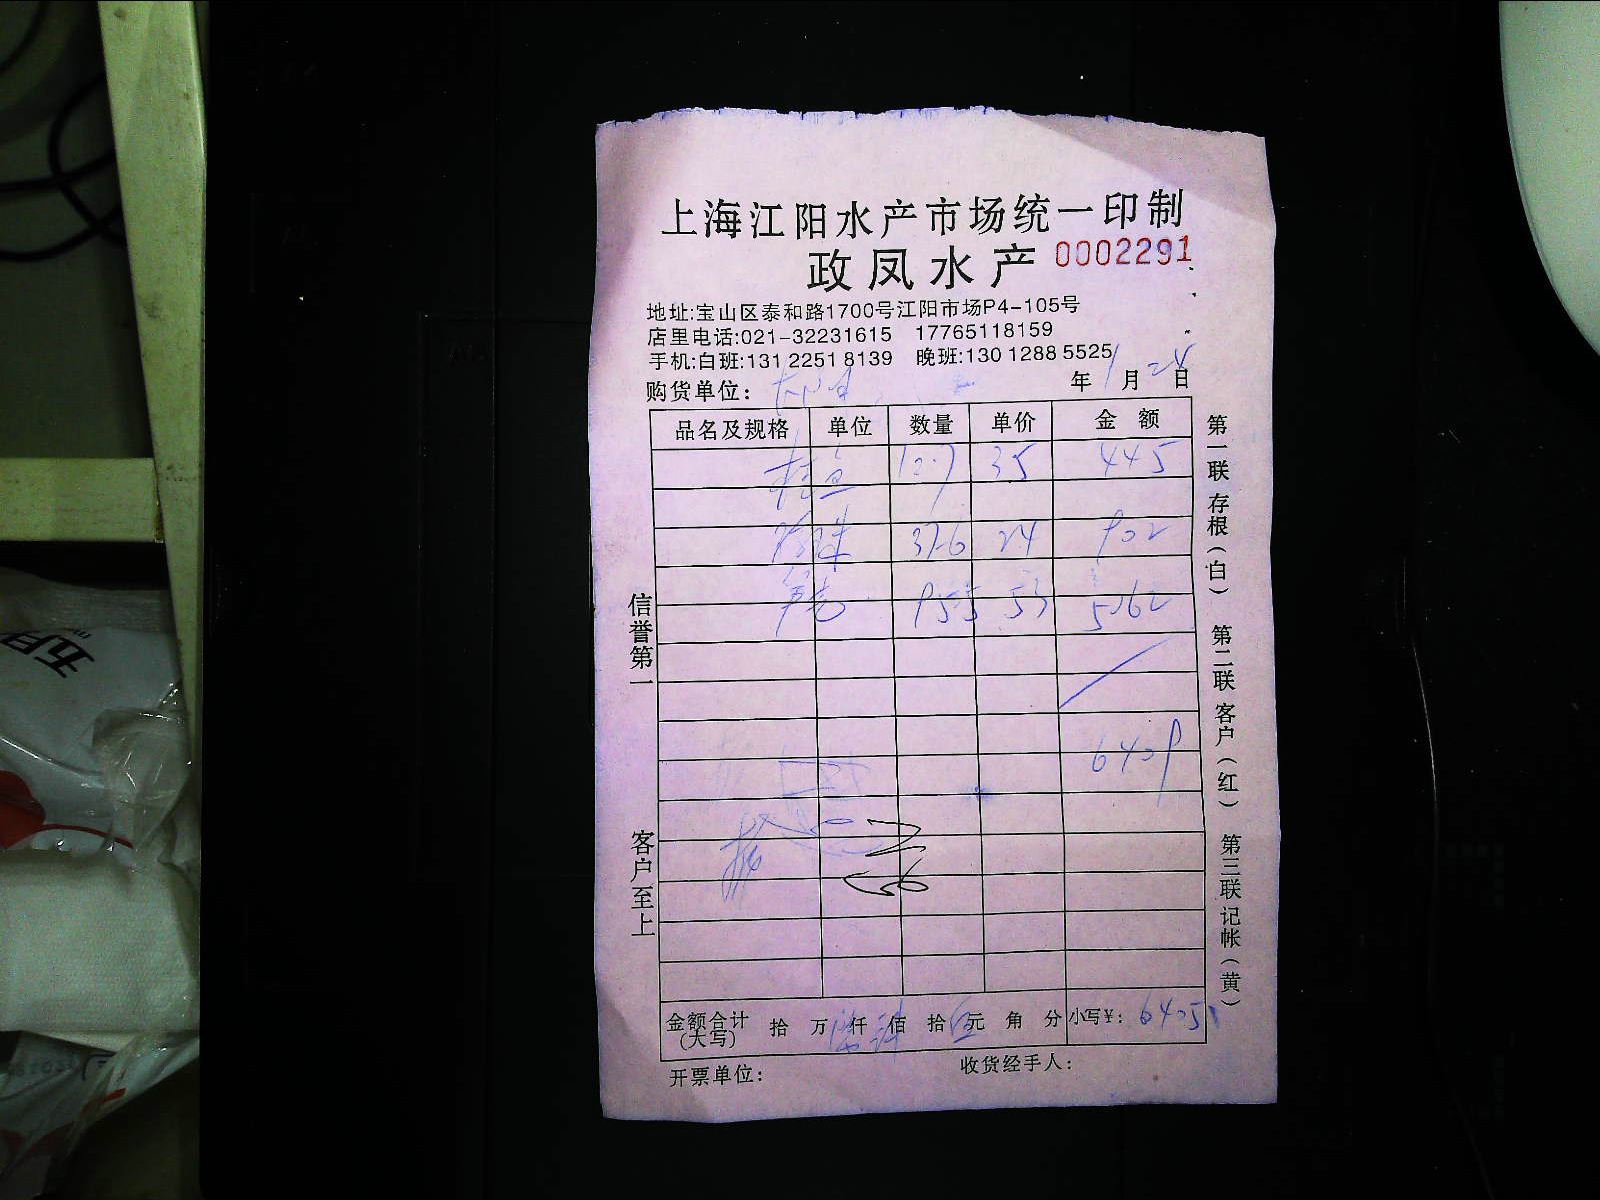 上海江阳水产市场统一印制
政凤水产 0002291
地址:宝山区泰和路1700号江阳市场P4-105号
店里电话:021-32231615 17765118159
手机:白班:131 2251 8139 晚班:130 1288 5525
购货单位: 年 1 月 24 日
品名及规格 单位 数量 单价 金额
桂鱼 12.7 35 445
珍珠 37.6 24 902
95.5 53 5062
6409
金额合计(大写) 拾 万 仟 佰 拾 伍 元 角 分 小写¥: 6405
开票单位: 收货经手人:
信誉第一 客户至上
第一联存根(白) 第二联客户(红) 第三联记帐(黄)
五月